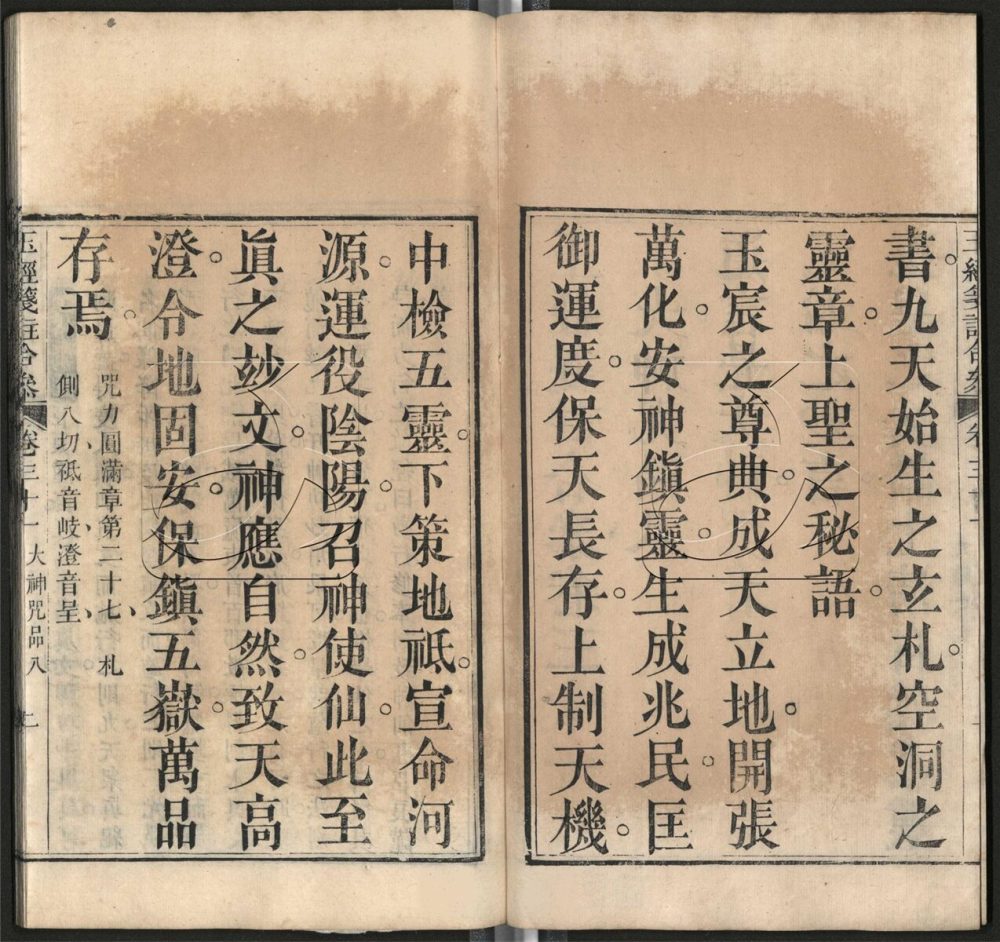 書。九天始生之玄札。空洞之
靈章。上聖之秘語。
玉宸之尊典。成天立地。開張
萬化。安神鎮靈。生成兆民。匡
御運度。保天長存。上制天機。
中檢五靈。下策地祗。宣命河
源。運役陰陽。召神使仙。此至
眞之玅文。神應自然。致天高
澄。令地固安。保鎮五嶽。萬品
存焉。
咒力圓滿章第二十七、札
側八切、祗音岐、澄音呈、
玉經箋註合纂 卷三十一 大神咒品八